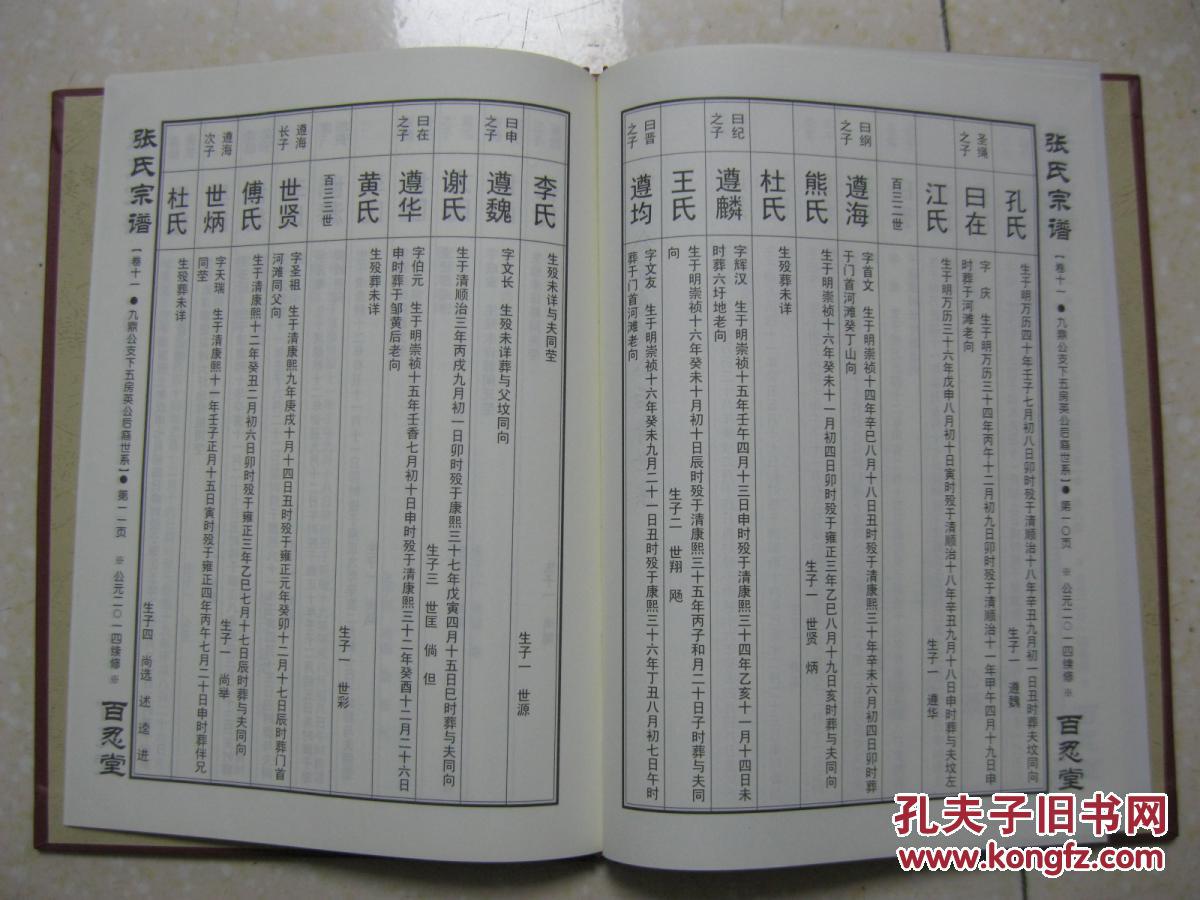 张氏宗谱
【卷十一●九鼎公支下五房英公后裔世系】●第一〇页
※公元二〇一四续修※
百忍堂
孔氏
生于明万历四十年壬子七月初八日卯时殁于清顺治十八年辛丑九月初一日丑时葬夫坟同向
生子一 遵魏
圣绳之子
曰在
字 庆 生于明万历三十四年丙午十二月初九日卯时殁于清顺治十一年甲午四月十九日申
时葬于河滩老向
江氏
生于明万历三十六年戊申八月初十日寅时殁于清顺治十八年辛丑九月十八日申时葬与夫坟左
生子一 遵华
百三二世
曰纲之子
遵海
字首文 生于明崇祯十四年辛巳八月十八日丑时殁于清康熙三十年辛未六月初四日卯时葬
于门首河滩癸丁山向
熊氏
生于明崇祯十六年癸未十一月初四日卯时殁于雍正三年乙巳八月十九日亥时葬与夫同向
生子一 世贤 炳
杜氏
生殁葬未详
曰纪之子
遵麟
字辉汉 生于明崇祯十五年壬午四月十三日申时殁于清康熙三十四年乙亥十一月十四日未
时葬六圩地老向
王氏
生于明崇祯十六年癸未十月初十日辰时殁于清康熙三十五年丙子和月二十日子时葬与夫同
向
生子二 世翔 飏
曰晋之子
遵均
字文友 生于明崇祯十六年癸未九月二十一日丑时殁于康熙三十六年丁丑八月初七日午时
葬于门首河滩老向
李氏
生殁未详与夫同茔
生子一 世源
曰申之子
遵魏
字文长 生殁未详葬与父坟同向
谢氏
生于清顺治三年丙戌九月初一日卯时殁于康熙三十七年戊寅四月十五日巳时葬与夫同向
生子三 世匡 倘 但
曰在之子
遵华
字伯元 生于明崇祯十五年壬香七月初十日申时殁于清康熙三十二年癸酉十二月二十六日
申时葬于邹黄后老向
黄氏
生殁葬未详
生子一 世彩
百三三世
遵海长子
世贤
字圣祖 生于清康熙九年庚戌十月十四日丑时殁于雍正元年癸卯十二月十七日辰时葬门首
河滩同父向
傅氏
生于清康熙十二年癸丑二月初六日卯时殁于雍正三年乙巳七月十七日辰时葬与夫同向
生子一 尚举
遵海次子
世炳
字天瑞 生于清康熙十一年壬子正月十五日寅时殁于雍正四年丙午七月二十日申时葬伴兄
同茔
杜氏
生殁葬未详
生子四 尚选 述 逵 进
张氏宗谱
【卷十一●九鼎公支下五房英公后裔世系】●第一一页
※公元二〇一四续修※
百忍堂
孔夫子旧书网
www.kongfz.com